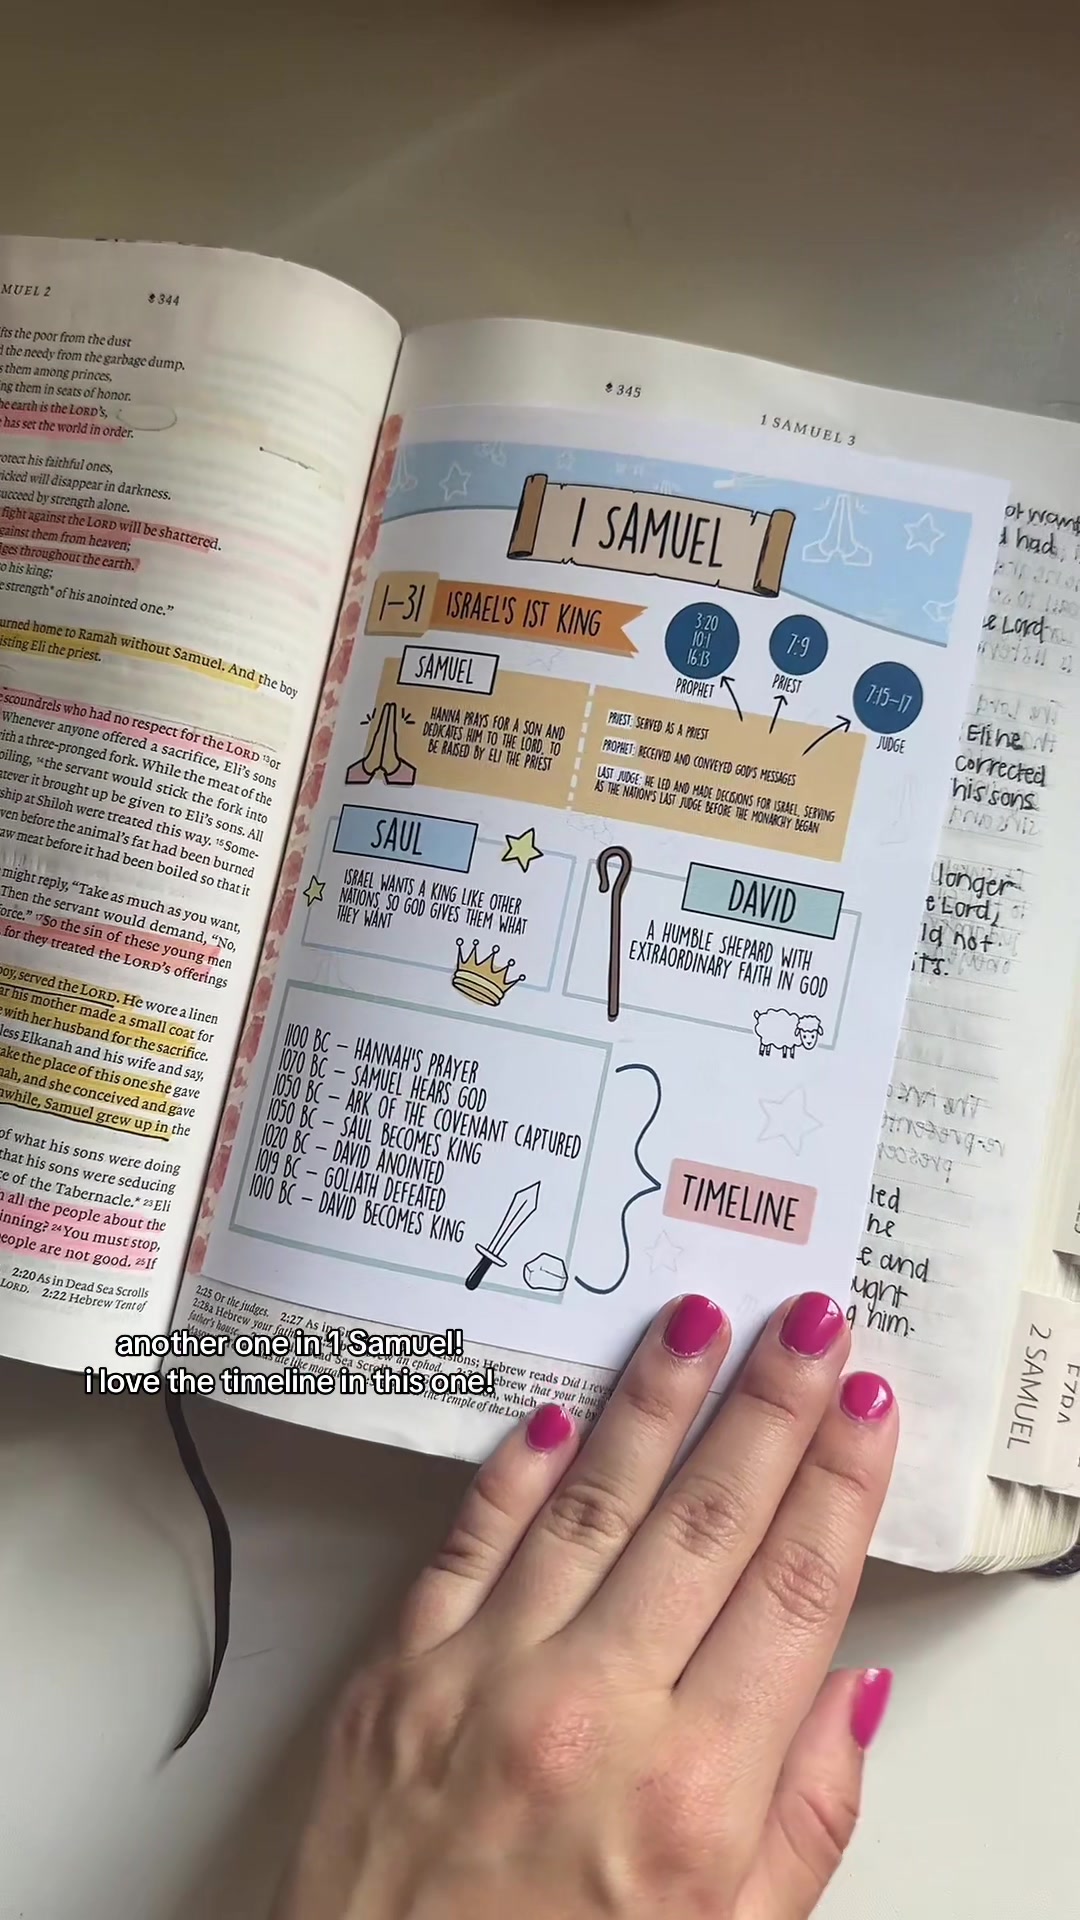 MUEL 2
344
fts the poor from the dust
the needy from the garbage dump.
s them among princes,
ng them in seats of honor.
he earth is the LORD's,
has set the world in order.
rotect his faithful ones,
icked will disappear in darkness.
ucceed by strength alone.
fight against the LORD will be shattered.
gainst them from heaven;
ges throughout the earth.
o his king;
e strength* of his anointed one."
urned home to Ramah without Samuel. And the boy
isting Eli the priest.
scoundrels who had no respect for the LORD 13or
Whenever anyone offered a sacrifice, Eli's sons
ith a three-pronged fork. While the meat of the
oiling, 14the servant would stick the fork into
atever it brought up be given to Eli's sons. All
ship at Shiloh were treated this way. 15Some-
ven before the animal's fat had been burned
aw meat before it had been boiled so that it
might reply, "Take as much as you want,
Then the servant would demand, "No,
force." 17So the sin of these young men
for they treated the LORD's offerings
boy, served the LORD. He wore a linen
ar his mother made a small coat for
with her husband for the sacrifice.
less Elkanah and his wife and say,
ake the place of this one she gave
nah, and she conceived and gave
nwhile, Samuel grew up in the
of what his sons were doing
that his sons were seducing
ce of the Tabernacle.* 23Eli
all the people about the
inning? 24You must stop,
eople are not good. 25If
2:20 As in Dead Sea Scrolls
LORD. 2:22 Hebrew Tent of
345
1 SAMUEL 3
1 SAMUEL
1-31
ISRAEL'S 1ST KING
3:20
10:1
16:13
PROPHET
7:9
PRIEST
7:15-17
JUDGE
SAMUEL
HANNA PRAYS FOR A SON AND
DEDICATES HIM TO THE LORD, TO
BE RAISED BY ELI THE PRIEST
PRIEST: SERVED AS A PRIEST
PROPHET: RECEIVED AND CONVEYED GOD'S MESSAGES
LAST JUDGE: HE LED AND MADE DECISIONS FOR ISRAEL, SERVING
AS THE NATION'S LAST JUDGE BEFORE THE MONARCHY BEGAN
SAUL
ISRAEL WANTS A KING LIKE OTHER
NATIONS, SO GOD GIVES THEM WHAT
THEY WANT
DAVID
A HUMBLE SHEPARD WITH
EXTRAORDINARY FAITH IN GOD
1100 BC - HANNAH'S PRAYER
1070 BC - SAMUEL HEARS GOD
1050 BC - ARK OF THE COVENANT CAPTURED
1050 BC - SAUL BECOMES KING
1020 BC - DAVID ANOINTED
1019 BC - GOLIATH DEFEATED
1010 BC - DAVID BECOMES KING
TIMELINE
2:25 Or the judges. 2:27 As in
Hebrew reads Did I
another one in 1 Samuel!
i love the timeline in this one!
had,
e Lord
Eli he
corrected
his sons
longer
e Lord,
ld not
led
he
e and
ught
g him.
2 SAMUEL